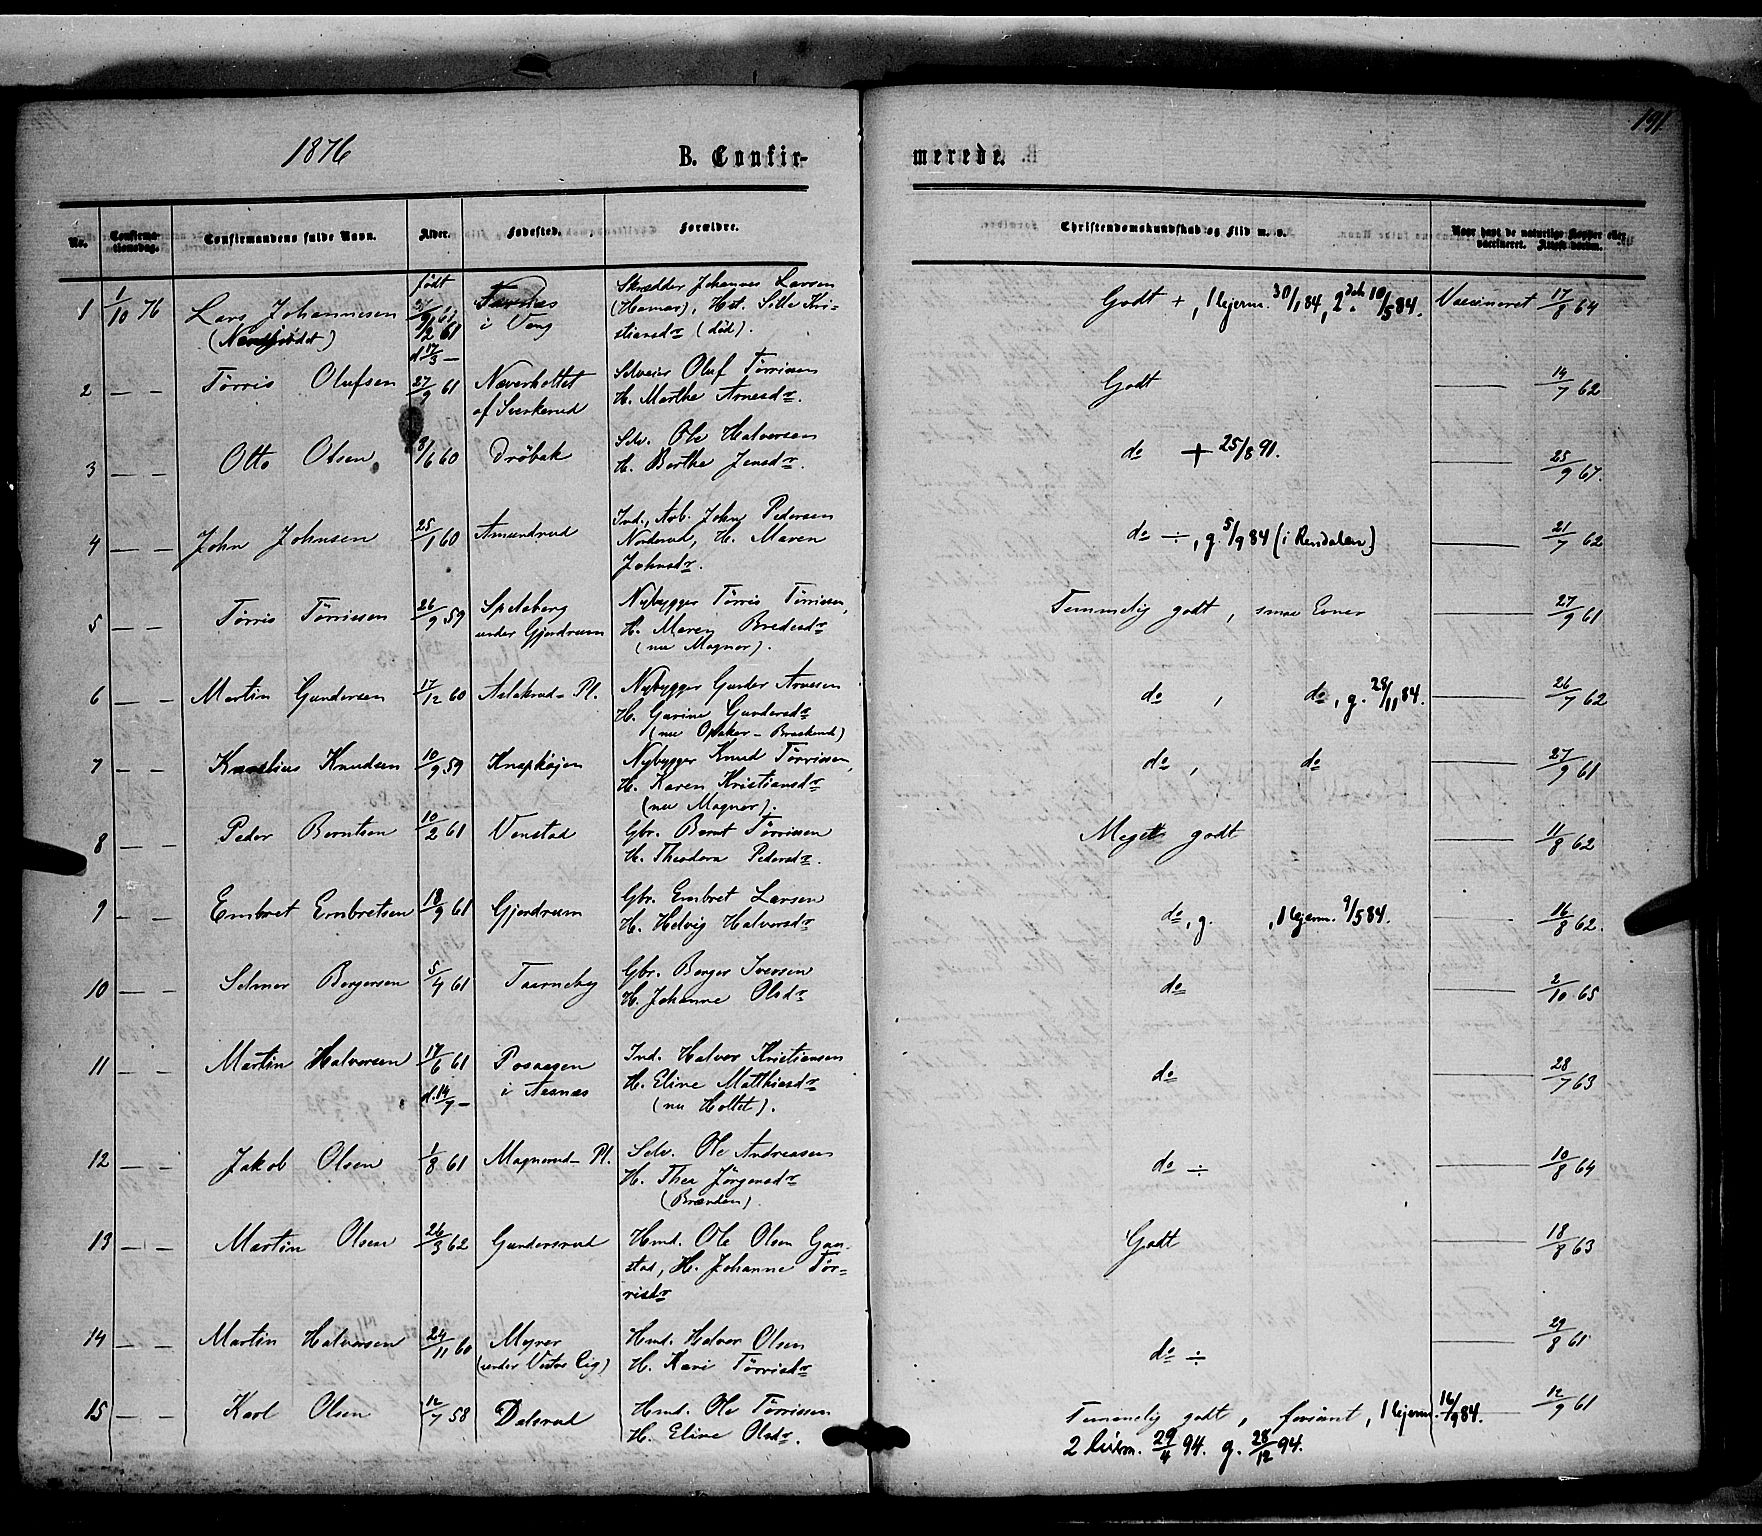 191
1876 B. Confir- merede.
No. Confirmationsdag. Confirmandens fulde Navn. Alder. Fødested. Forældre. Christendomskundskab og Flid m. v. Naar havt de naturlige Kopper eller vaccineret. Attest derom.
1 1/10 76 Lars Johannesen født 27/9 61 i Vang Skrædder Johannes Larsen Godt +, 1 lejerm. 30/1 84, 2den 10/5 84. Vaccineret 17/8 64
9/2 61 (Hamar), H. Sille Kri-
d 17/3 — stiansdr (død).
2 — — Tørris Olufsen 27/9 61 Næverholtet Selveier Oluf Tørrissen Godt —— 14/7 62
af Sverkerud H. Marthe Arnesdr.
3 — — Otto Olsen 8/6 60 Drøbak Selv. Ole Halvorsen do + 25/8 91. —— 25/9 67.
H. Berthe Jensdr.
4 — — John Johnsen 25/1 60 Amundrud Ind., Arb. John Pedersen do ÷, g. 5/9 84 (i Rendalen) —— 21/7 62
Norderud, H. Maren
Johnsdr.
5 — — Tørris Tørrissen 26/9 59 Spelsberg Nybygger Tørris Tørrissen, Temmelig godt, smaa Evner —— 27/9 61
under Gjerdrum H. Maren Bredesdr
(nu Magnor).
6 — — Martin Gundersen 17/12 60 Aslakrud-Pl. Nybygger Gunder Arnesen do, do, g. 28/11 84. —— 26/7 62
H. Gurine Gundersdr
(nu Opaker-Braskerud)
7 — — Knudsen 10/9 59 Knaphøjen Nybygger Knud Tørrissen, do, do —— 27/9 61
H. Karen Kristiansdr
(nu Magnor).
8 — — Peder Berntsen 10/2 61 Venstad Gbr. Bernt Tørrissen Meget godt —— 11/8 62
H. Theodora Pedersdr.
9 — — Embret Embretsen 18/9 61 Gjerdrum Gbr. Embret Larsen do, g. , 1 lejerm. 9/5 84. —— 16/8 62.
H. Helvig Halvorsdr
10 — — Selmer Bergersen 5/4 61 Taarneby Gbr. Berger Iversen do —— 2/10 65
H. Johanne Olsdr
11 — — Martin Halvorsen 17/6 61 Posaasen Ind. Halvor Kristiansen do —— 28/7 63
d. 14/7 — i Aasnæs H. Eline Matthisdr
(nu Holtet).
12 — — Jakob Olsen 1/8 61 Magnerud-Pl. Selv. Ole Andreasen do ÷ —— 10/8 64
H. Thea Jørgensdr
(Brænden).
13 — — Martin Olsen 26/3 62 Gundersrud Hmd. Ole Olsen Gaustad, H. Johanne Tør- Godt —— 18/8 63
risdr
14 — — Martin Halvorsen 24/11 60 Myrer Hmd. Halvor Olsen do ÷ —— 29/8 61
(under Vestre Eig) H. Kari Tørrisdr
15 — — Karl Olsen 12/7 58 Dalsrud Hmd. Ole Tørrissen Temmelig godt, forsømt, 1 lejerm. 16/9 84. 12/9 61
H. Eline Olsdr. 2 leierm. 29/4 94. g. 28/12 94.